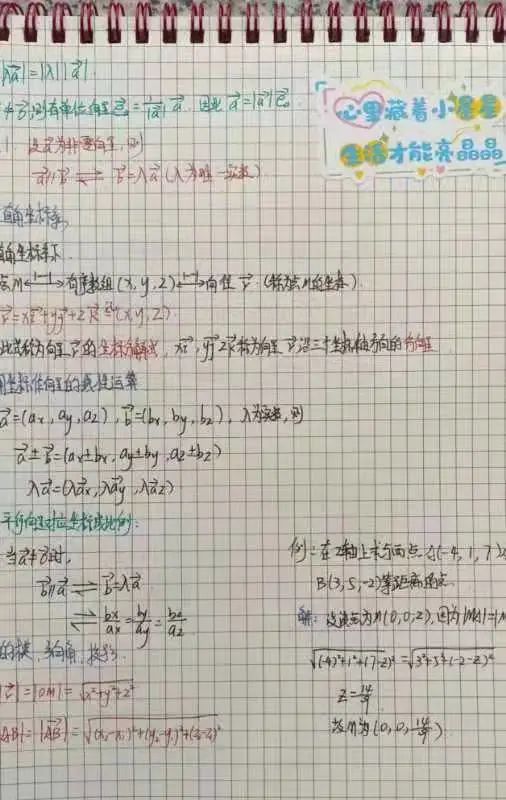 |λa⃗|=|λ||a⃗|.
≠0⃗,则有单位向量e⃗ₐ=1/|a⃗| a⃗. 因此 a⃗=|a⃗|e⃗ₐ
心里藏着小星星
生活才能亮晶晶
1. 设a⃗为非零向量,则
a⃗∥b⃗ ⇌ b⃗=λa⃗(λ为唯一实数)
直角坐标系
直角坐标系下.
点M ←1-1→ 有序数组(x,y,z) ←1-1→ 向径 r⃗ (称为点M的坐标).
r⃗=xi⃗+yj⃗+zk⃗ (x,y,z)
此式称为向量r⃗的坐标分解式, xi⃗, yj⃗, zk⃗称为向量r⃗沿三个坐标轴方向的分向量
用坐标作向量的线性运算
a⃗=(ax,ay,az), b⃗=(bx,by,bz), λ为实数,则
a⃗±b⃗=(ax±bx,ay±by,az±bz)
λa⃗=(λax,λay,λaz)
平行向量对应坐标成比例:
当a⃗≠0⃗时,
b⃗∥a⃗ ⇌ b⃗=λa⃗
⇌ bx/ax=by/ay=bz/az
的模、方向角、投影.
|r⃗|=|OM|=√x²+y²+z²
|AB|=|AB⃗|=√(x₂-x₁)²+(y₂-y₁)²+(z₂-z₁)²
例:在z轴上求与两点A(-4,1,7)
B(3,5,-2)等距离的点.
解:设该点为M(0,0,z),因为|MA|=|M
√(-4)²+1²+(7-z)²=√3²+5²+(-2-z)²
z=14/9
故M为(0,0,14/9)